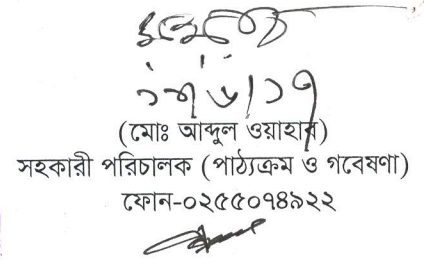 (মোঃ আব্দুল ওয়াহাব)
সহকারী পরিচালক (পাঠ্যক্রম ও গবেষণা)
ফোন-০২৫৫০৭৪৯২২